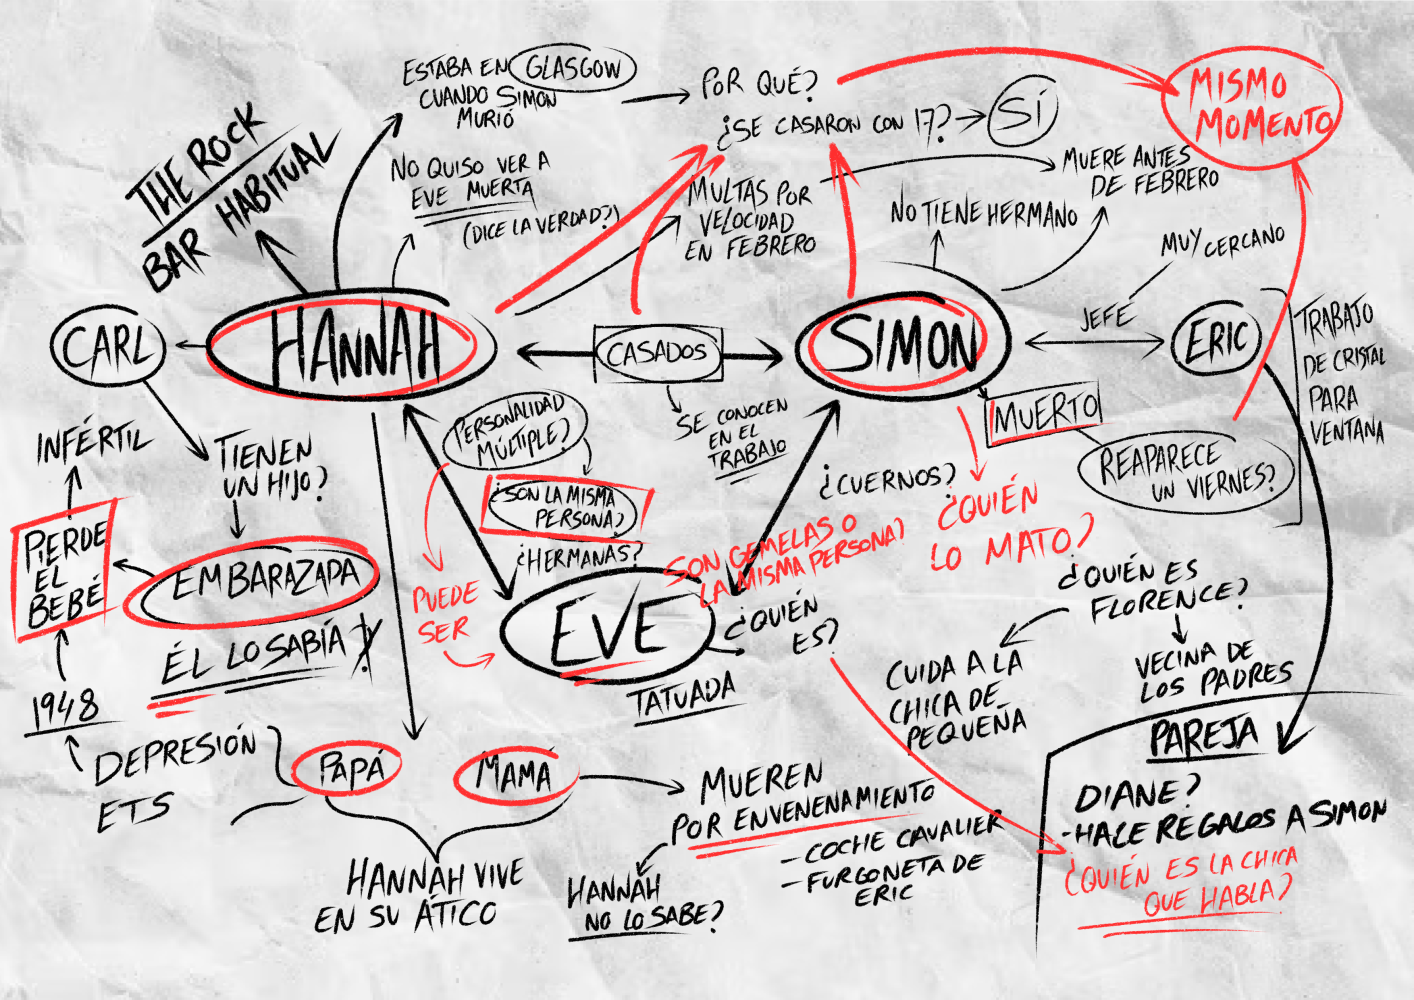 ESTABA EN GLASGOW
CUANDO SIMON
MURIÓ
POR QUÉ?
¿SE CASARON CON 17?
SÍ
MISMO
MOMENTO
THE ROCK
BAR HABITUAL
NO QUISO VER A
EVE MUERTA
(DICE LA VERDAD?)
MULTAS POR
VELOCIDAD
EN FEBRERO
MUERE ANTES
DE FEBRERO
NO TIENE HERMANO
MUY CERCANO
CARL
HANNAH
CASADOS
SIMON
JEFE
ERIC
TRABAJO
DE CRISTAL
PARA
VENTANA
SE CONOCEN
EN EL
TRABAJO
MUERTO
REAPARECE
UN VIERNES?
INFÉRTIL
TIENEN
UN HIJO?
PERSONALIDAD
MÚLTIPLE?
¿SON LA MISMA
PERSONA?
¿HERMANAS?
¿CUERNOS?
¿QUIÉN
LO MATO?
SON GEMELAS O
LA MISMA PERSONA?
PIERDE
EL
BEBÉ
EMBARAZADA
ÉL LO SABÍA
PUEDE
SER
EVE
TATUADA
¿QUIÉN
ES?
¿QUIÉN ES
FLORENCE?
CUIDA A LA
CHICA DE
PEQUEÑA
VECINA DE
LOS PADRES
1948
DEPRESIÓN
ETS
PAPÁ
MAMÁ
MUEREN
POR ENVENENAMIENTO
- COCHE CAVALIER
- FURGONETA DE
ERIC
HANNAH VIVE
EN SU ÁTICO
HANNAH
NO LO SABE?
PAREJA
DIANE?
- HACE REGALOS A SIMON
¿QUIÉN ES LA CHICA
QUE HABLA?